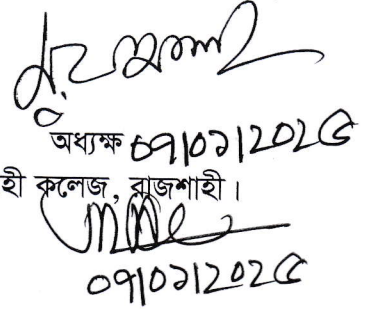 অধ্যক্ষ ০৭|০১|২০২৫
হী কলেজ, রাজশাহী।
০৭|০১|২০২৫